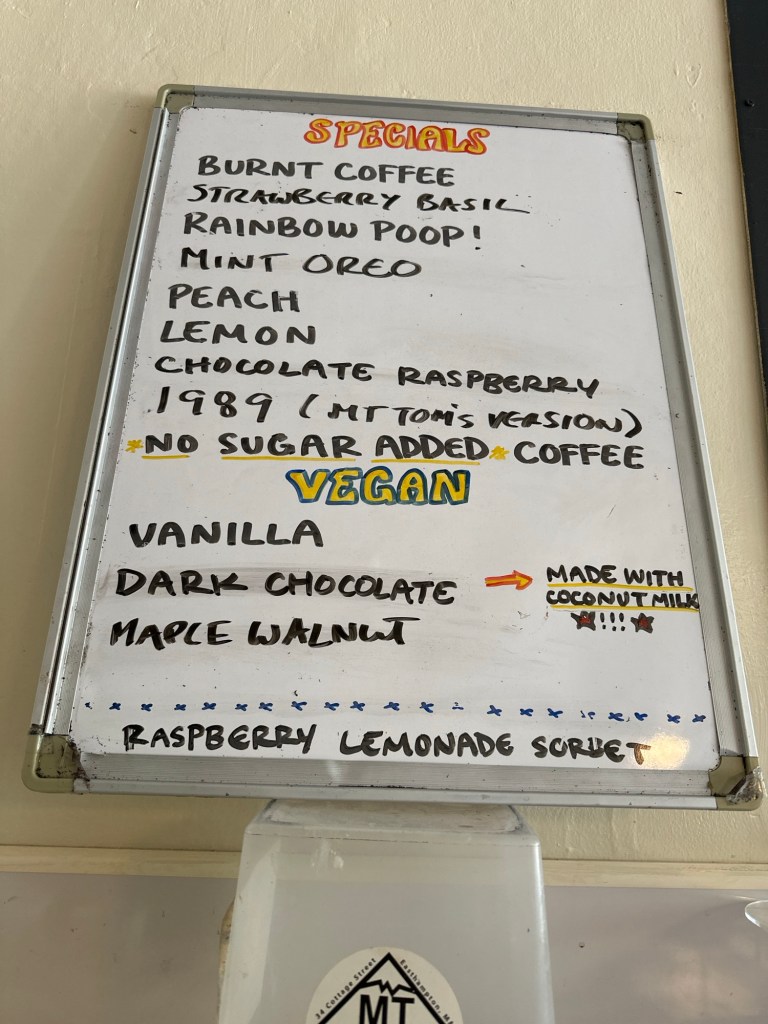 SPECIALS
BURNT COFFEE
STRAWBERRY BASIL
RAINBOW POOP!
MINT OREO
PEACH
LEMON
CHOCOLATE RASPBERRY
1989 (MT TOM'S VERSION)
*NO SUGAR ADDED* COFFEE
VEGAN
VANILLA
DARK CHOCOLATE → MADE WITH
COCONUT MILK
!!!
MAPLE WALNUT
RASPBERRY LEMONADE SORBET
34 Cottage Street Easthampton,
MT